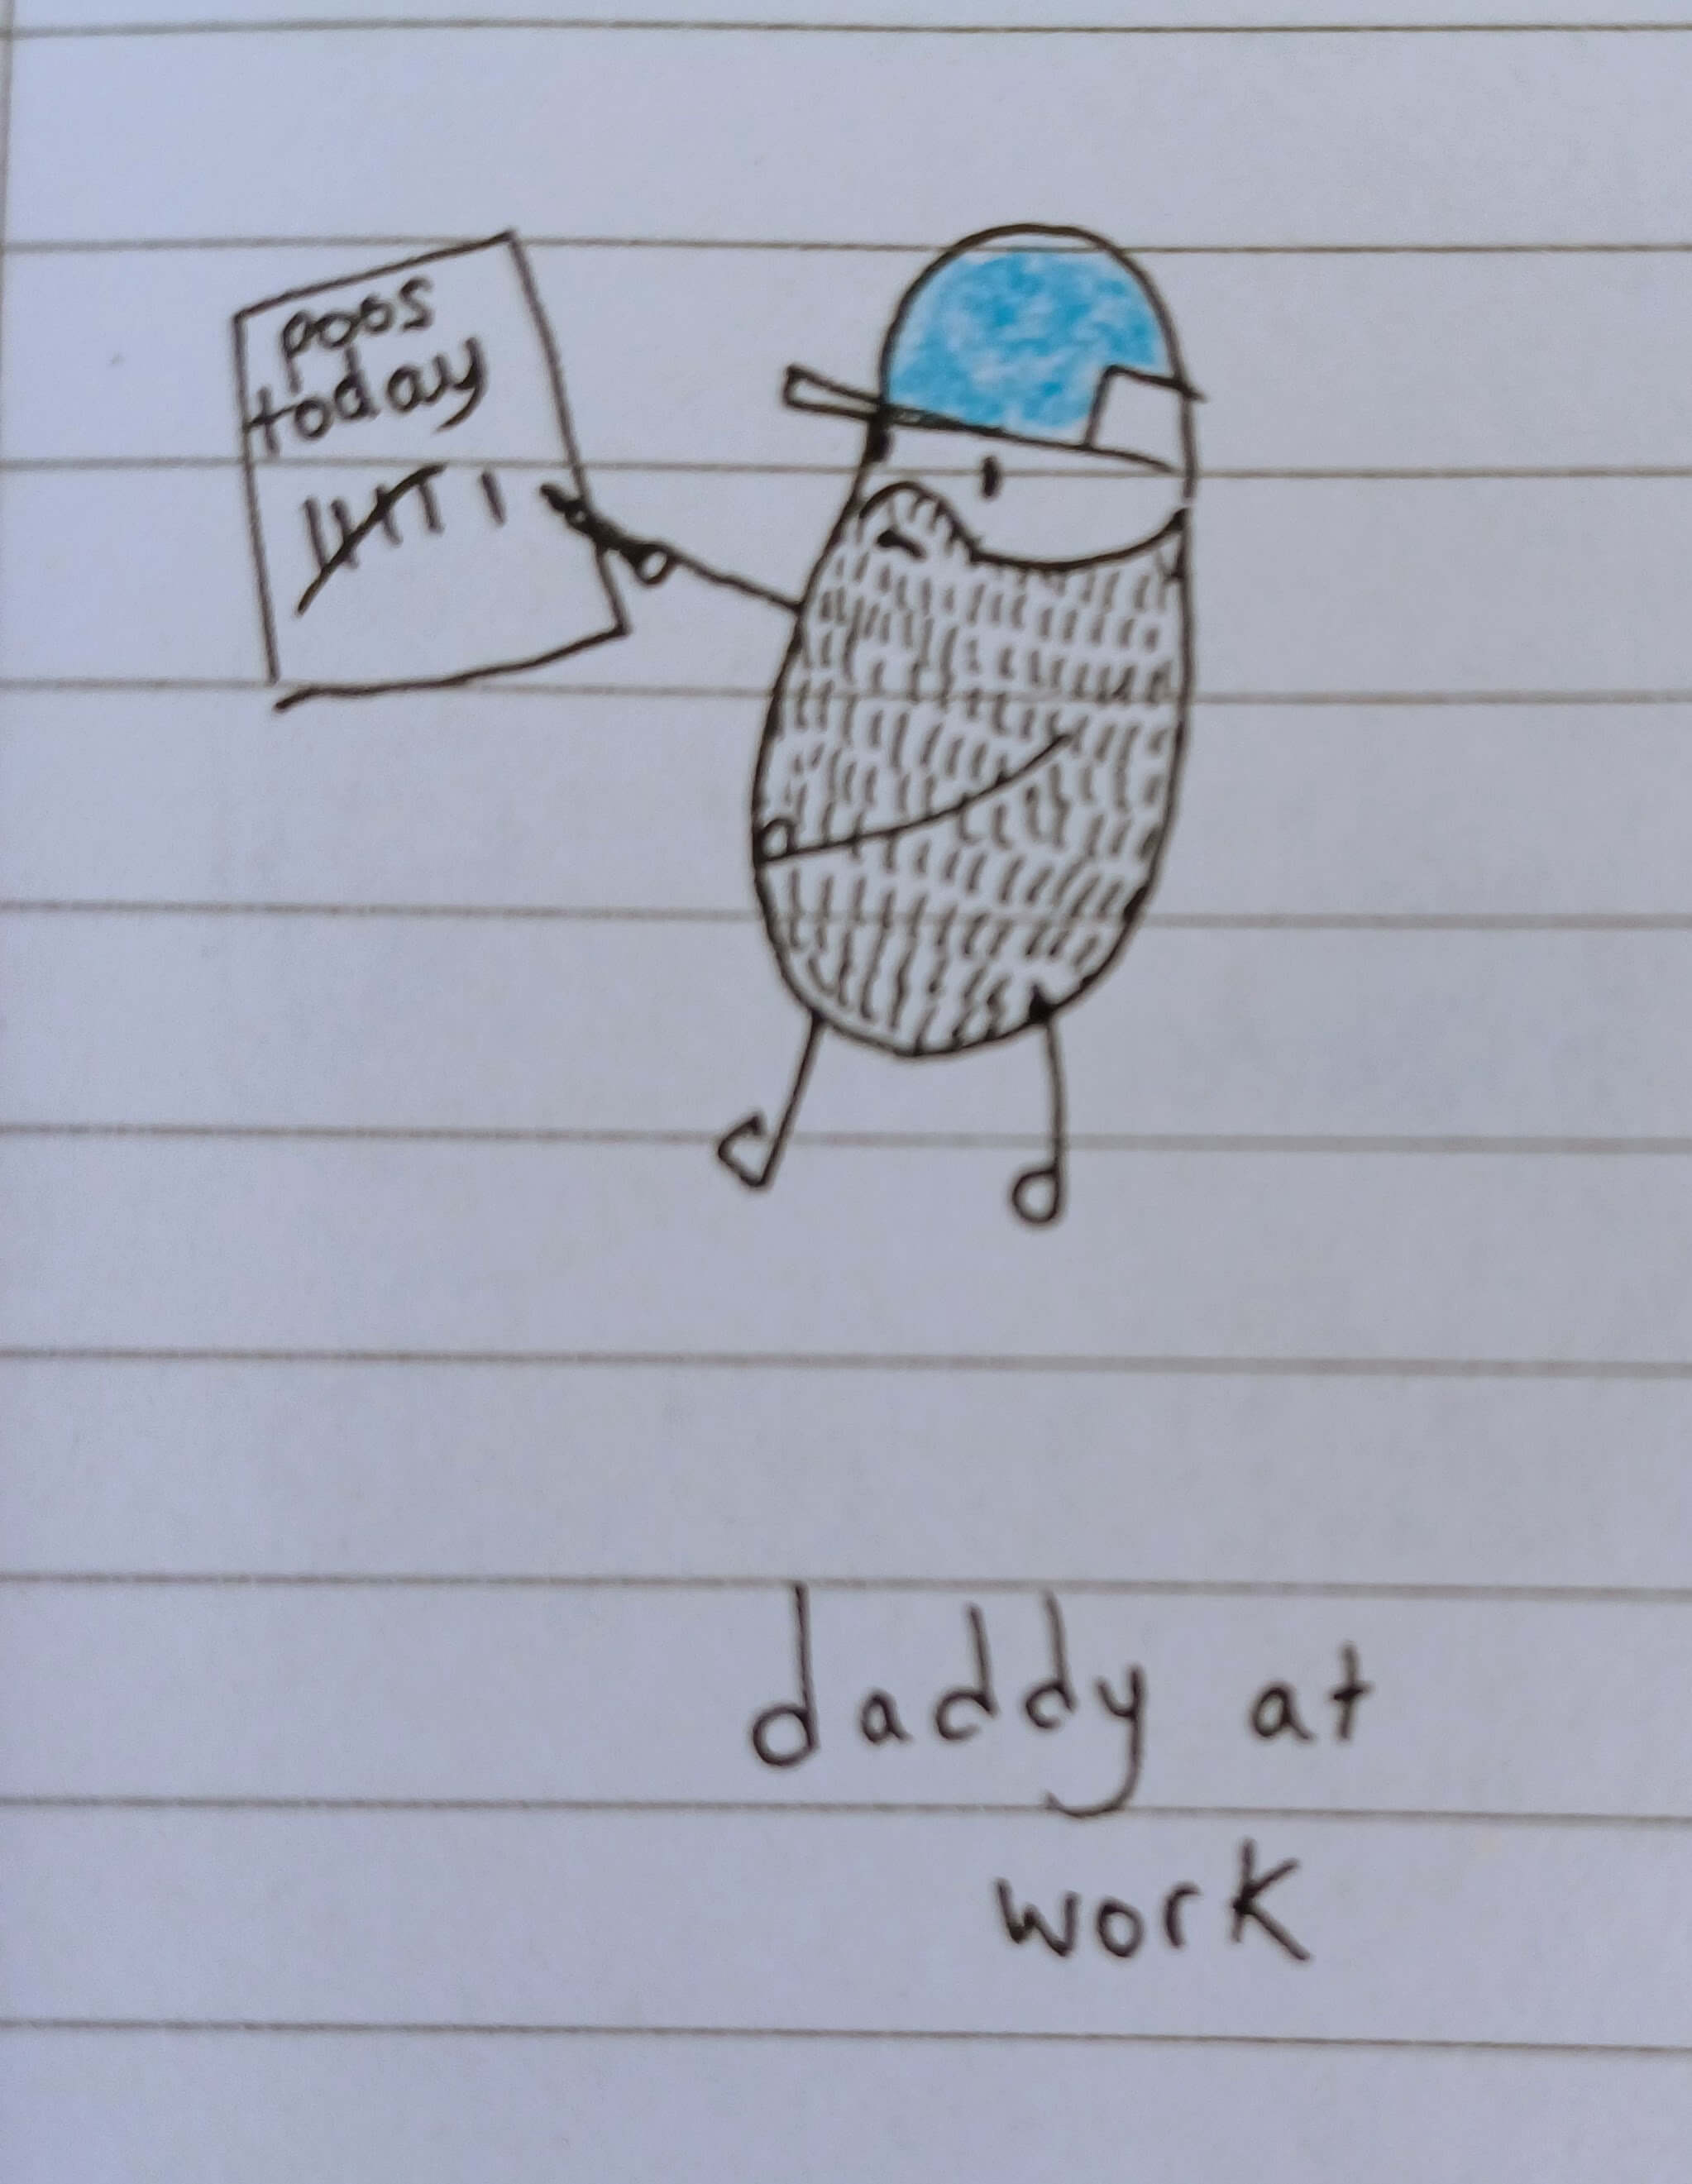 poos
today
daddy at
work